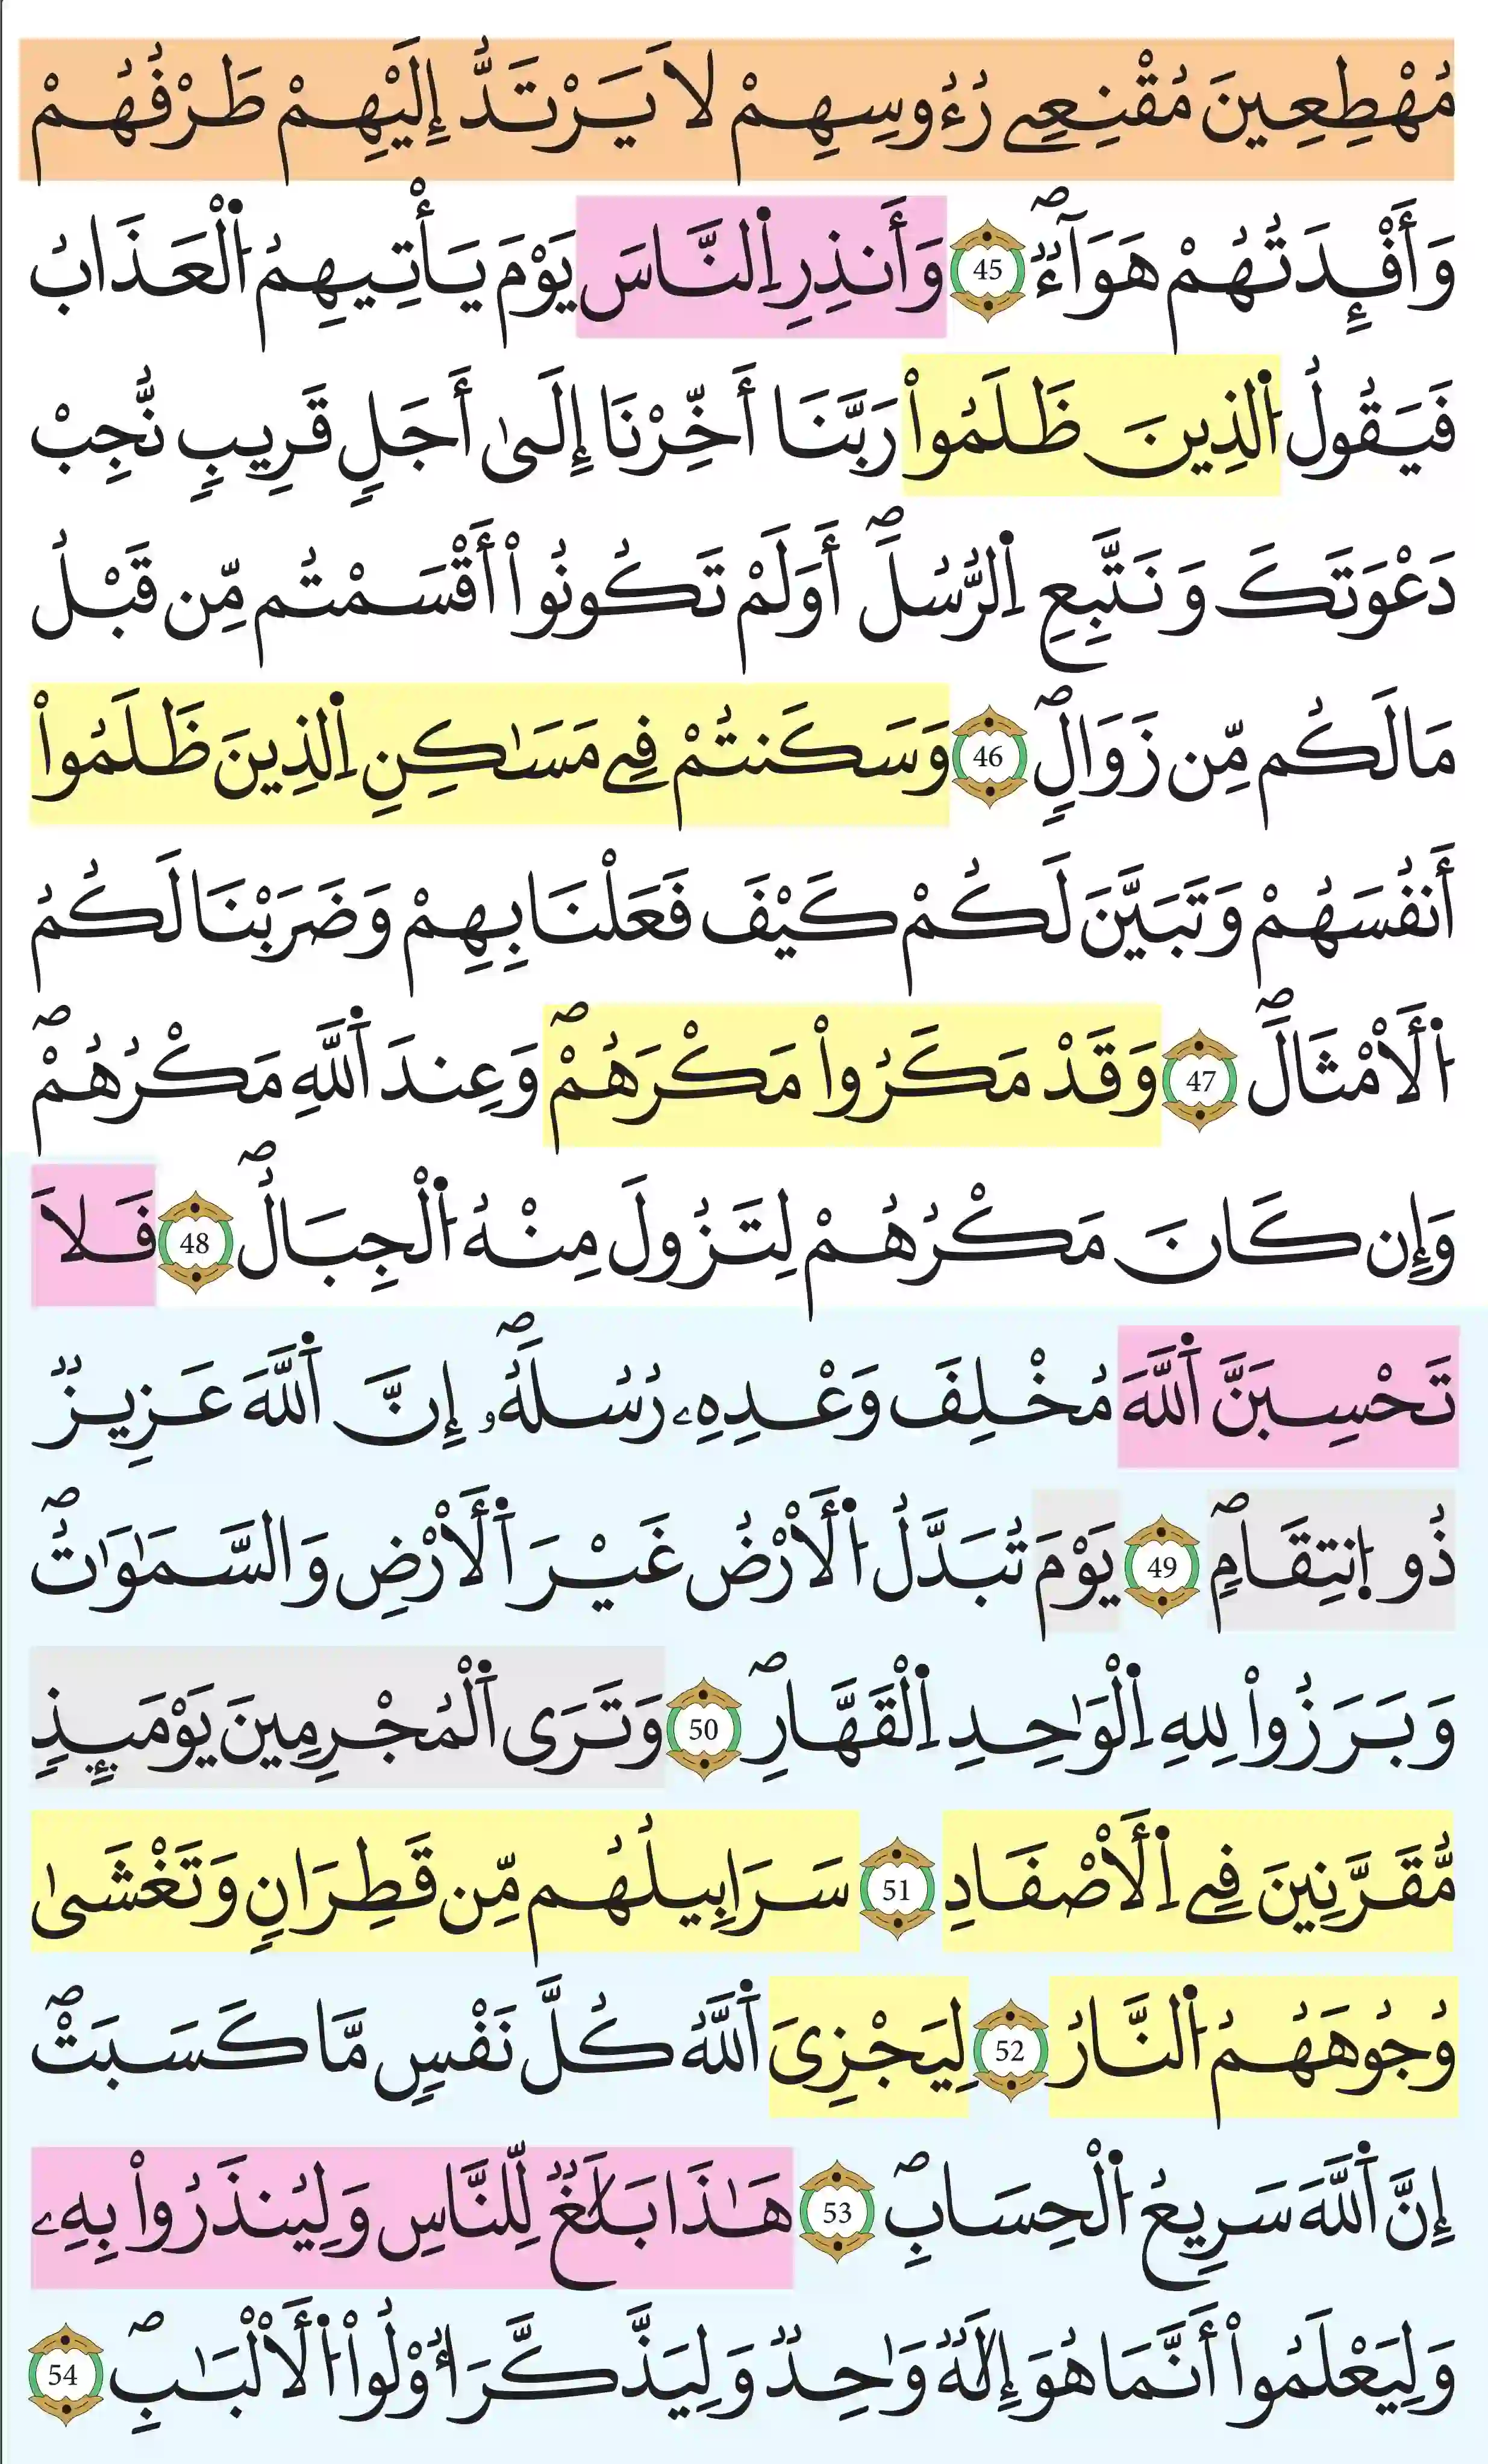 مُهْطِعِينَ مُقْنِعِے رُءُوسِهِمْ لَا يَرْتَدُّ إِلَيْهِمْ طَرْفُهُمْ
وَأَفْـِٕدَتُهُمْ هَوَآءٌۖ 45 وَأَنذِرِ اِ۬لنَّاسَ يَوْمَ يَأْتِيهِمُ اُ۬لْعَذَابُ
فَيَقُولُ اُ۬لذِينَ ظَلَمُواْ رَبَّنَا أَخِّرْنَا إِلَىٰ أَجَلٍ قَرِيبٍ نُّجِبْ
دَعْوَتَكَ وَنَتَّبِعِ اِ۬لرُّسُلَۖ أَوَلَمْ تَكُونُواْ أَقْسَمْتُم مِّن قَبْلُ
مَا لَكُم مِّن زَوَالٍۖ 46 وَسَكَنتُمْ فِے مَسَٰكِنِ اِ۬لذِينَ ظَلَمُواْ
أَنفُسَهُمْ وَتَبَيَّنَ لَكُمْ كَيْفَ فَعَلْنَا بِهِمْ وَضَرَبْنَا لَكُمُ
اُ۬لْأَمْثَالَۖ 47 وَقَدْ مَكَرُواْ مَكْرَهُمْۖ وَعِندَ اَ۬للَّهِ مَكْرُهُمْۖ
وَإِن كَانَ مَكْرُهُمْ لِتَزُولَ مِنْهُ اُ۬لْجِبَالُۖ 48 فَلَا
تَحْسِبَنَّ اَ۬للَّهَ مُخْلِفَ وَعْدِهِۦ رُسُلَهُۥۖ إِنَّ اَ۬للَّهَ عَزِيزٌ
ذُو اُ۪نتِقَامٍۖ 49 يَوْمَ تُبَدَّلُ اُ۬لْأَرْضُ غَيْرَ اَ۬لْأَرْضِ وَالسَّمَٰوَٰتُۖ
وَبَرَزُواْ لِلهِ اِ۬لْوَٰحِدِ اِ۬لْقَهَّارِۖ 50 وَتَرَى اَ۬لْمُجْرِمِينَ يَوْمَئِذٍ
مُّقَرَّنِينَ فِے اِ۬لْأَصْفَادِ 51 سَرَابِيلُهُم مِّن قَطِرَانٍ وَتَغْشَىٰ
وُجُوهَهُمُ اُ۬لنَّارُ 52 لِيَجْزِىَ اَ۬للَّهُ كُلَّ نَفْسٍ مَّا كَسَبَتْۖ
إِنَّ اَ۬للَّهَ سَرِيعُ اُ۬لْحِسَابِۖ 53 هَٰذَا بَلَٰغٌ لِّلنَّاسِ وَلِيُنذَرُواْ بِهِۦ
وَلِيَعْلَمُواْ أَنَّمَا هُوَ إِلَٰهٌ وَٰحِدٌ وَلِيَذَّكَّرَ أُوْلُواْ اُ۬لْأَلْبَٰبِۖ 54